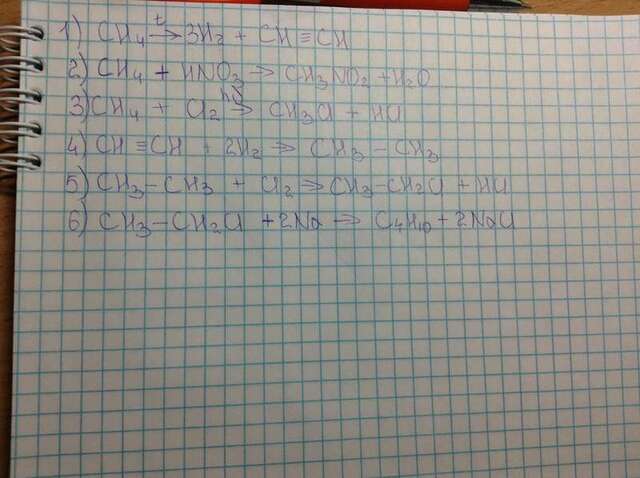 1) CH4 t→ 3H2 + CH≡CH
2) CH4 + HNO3 → CH3NO2 + H2O
3) CH4 + Cl2 hγ→ CH3Cl + HCl
4) CH≡CH + 2H2 → CH3-CH3
5) CH3-CH3 + Cl2 → CH3-CH2Cl + HCl
6) CH3-CH2Cl + 2Na → C4H10 + 2NaCl